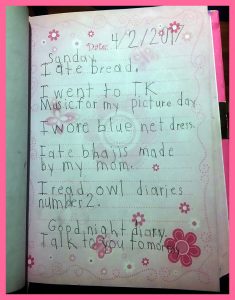 Date: 4/2/2017
Sunday
I ate bread.
I went to TK
Music for my picture day.
I wore blue net dress.
I ate bhajis made
by my mom.
I read owl diaries
number 2.
Good night diary
Talk to you tomorrow